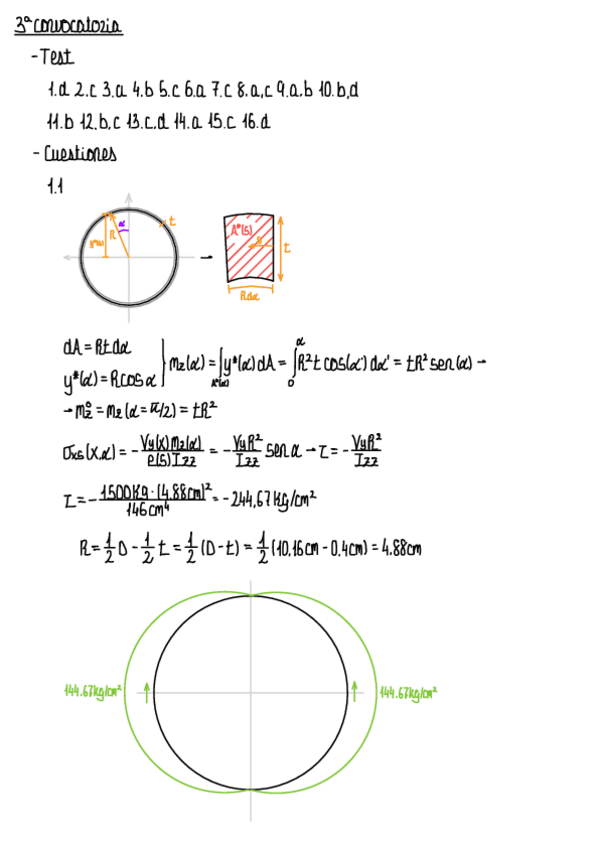 3ª convocatoria
- Test
1.d 2.c 3.a 4.b 5.c 6.a 7.c 8.a,c 9.a,b 10.b,d
11.b 12.b,c 13.c,d 14.a 15.c 16.d
- Cuestiones
1.1
α t
R
y*(s)
→
A*(s)
s
t
Rdα
dA = Rtdα
y*(α) = Rcosα } mz(α) = ∫A*(α) y*(α)dA = ∫₀^α R²t cos(α')dα' = tR² sen(α) →
→ mz° = mz(α = π/2) = tR²
σxs(x,α) = - Vy(x)mz(α) / e(s)Izz = - VyR²/Izz sen α → τ = - VyR²/Izz
τ = - 1500Kg·(4.88cm)² / 146cm⁴ = -244,67 Kg/cm²
R = 1/2 D - 1/2 t = 1/2 (D - t) = 1/2 (10,16cm - 0.4cm) = 4.88cm
144.67kg/cm² ↑ ↑ 144.67kg/cm²